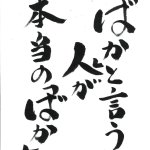 ばかと言う
人が
本当のばか